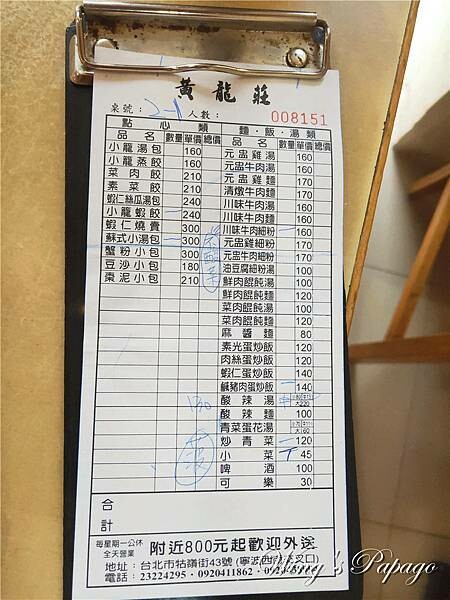 黃龍莊
桌號：2-1 人數：
008151
點心類 麵・飯・湯類
品名 數量 單價 總價 品名 數量 單價 總價
小龍湯包 160 元盅雞湯 160
小龍蒸餃 160 元盅牛肉湯 160
菜肉餃 210 元盅雞麵 170
素菜餃 210 清燉牛肉麵 170
蝦仁絲瓜湯包 240 川味牛肉湯 160
小龍蝦餃 240 川味牛肉麵 160
蝦仁燒賣 300 川味牛肉細粉 160
蘇式小湯包 300 元盅雞細粉 170
蟹粉小包 300 元盅牛肉細粉 170
豆沙小包 180 油豆腐細粉湯 100
棗泥小包 210 鮮肉餛飩湯 100
鮮肉餛飩麵 120
菜肉餛飩湯 100
菜肉餛飩麵 120
麻醬麵 80
素光蛋炒飯 120
肉絲蛋炒飯 120
蝦仁蛋炒飯 140
鹹豬肉蛋炒飯 140
酸辣湯
酸辣麵 100
青菜蛋花湯
炒青菜 120
小菜 45
啤酒 100
可樂 30
合計
每星期一公休
全天營業
附近800元起歡迎外送
地址：台北市牯嶺街43號(寧波西街交叉口)
電話：23224295・0920411862・
Papago